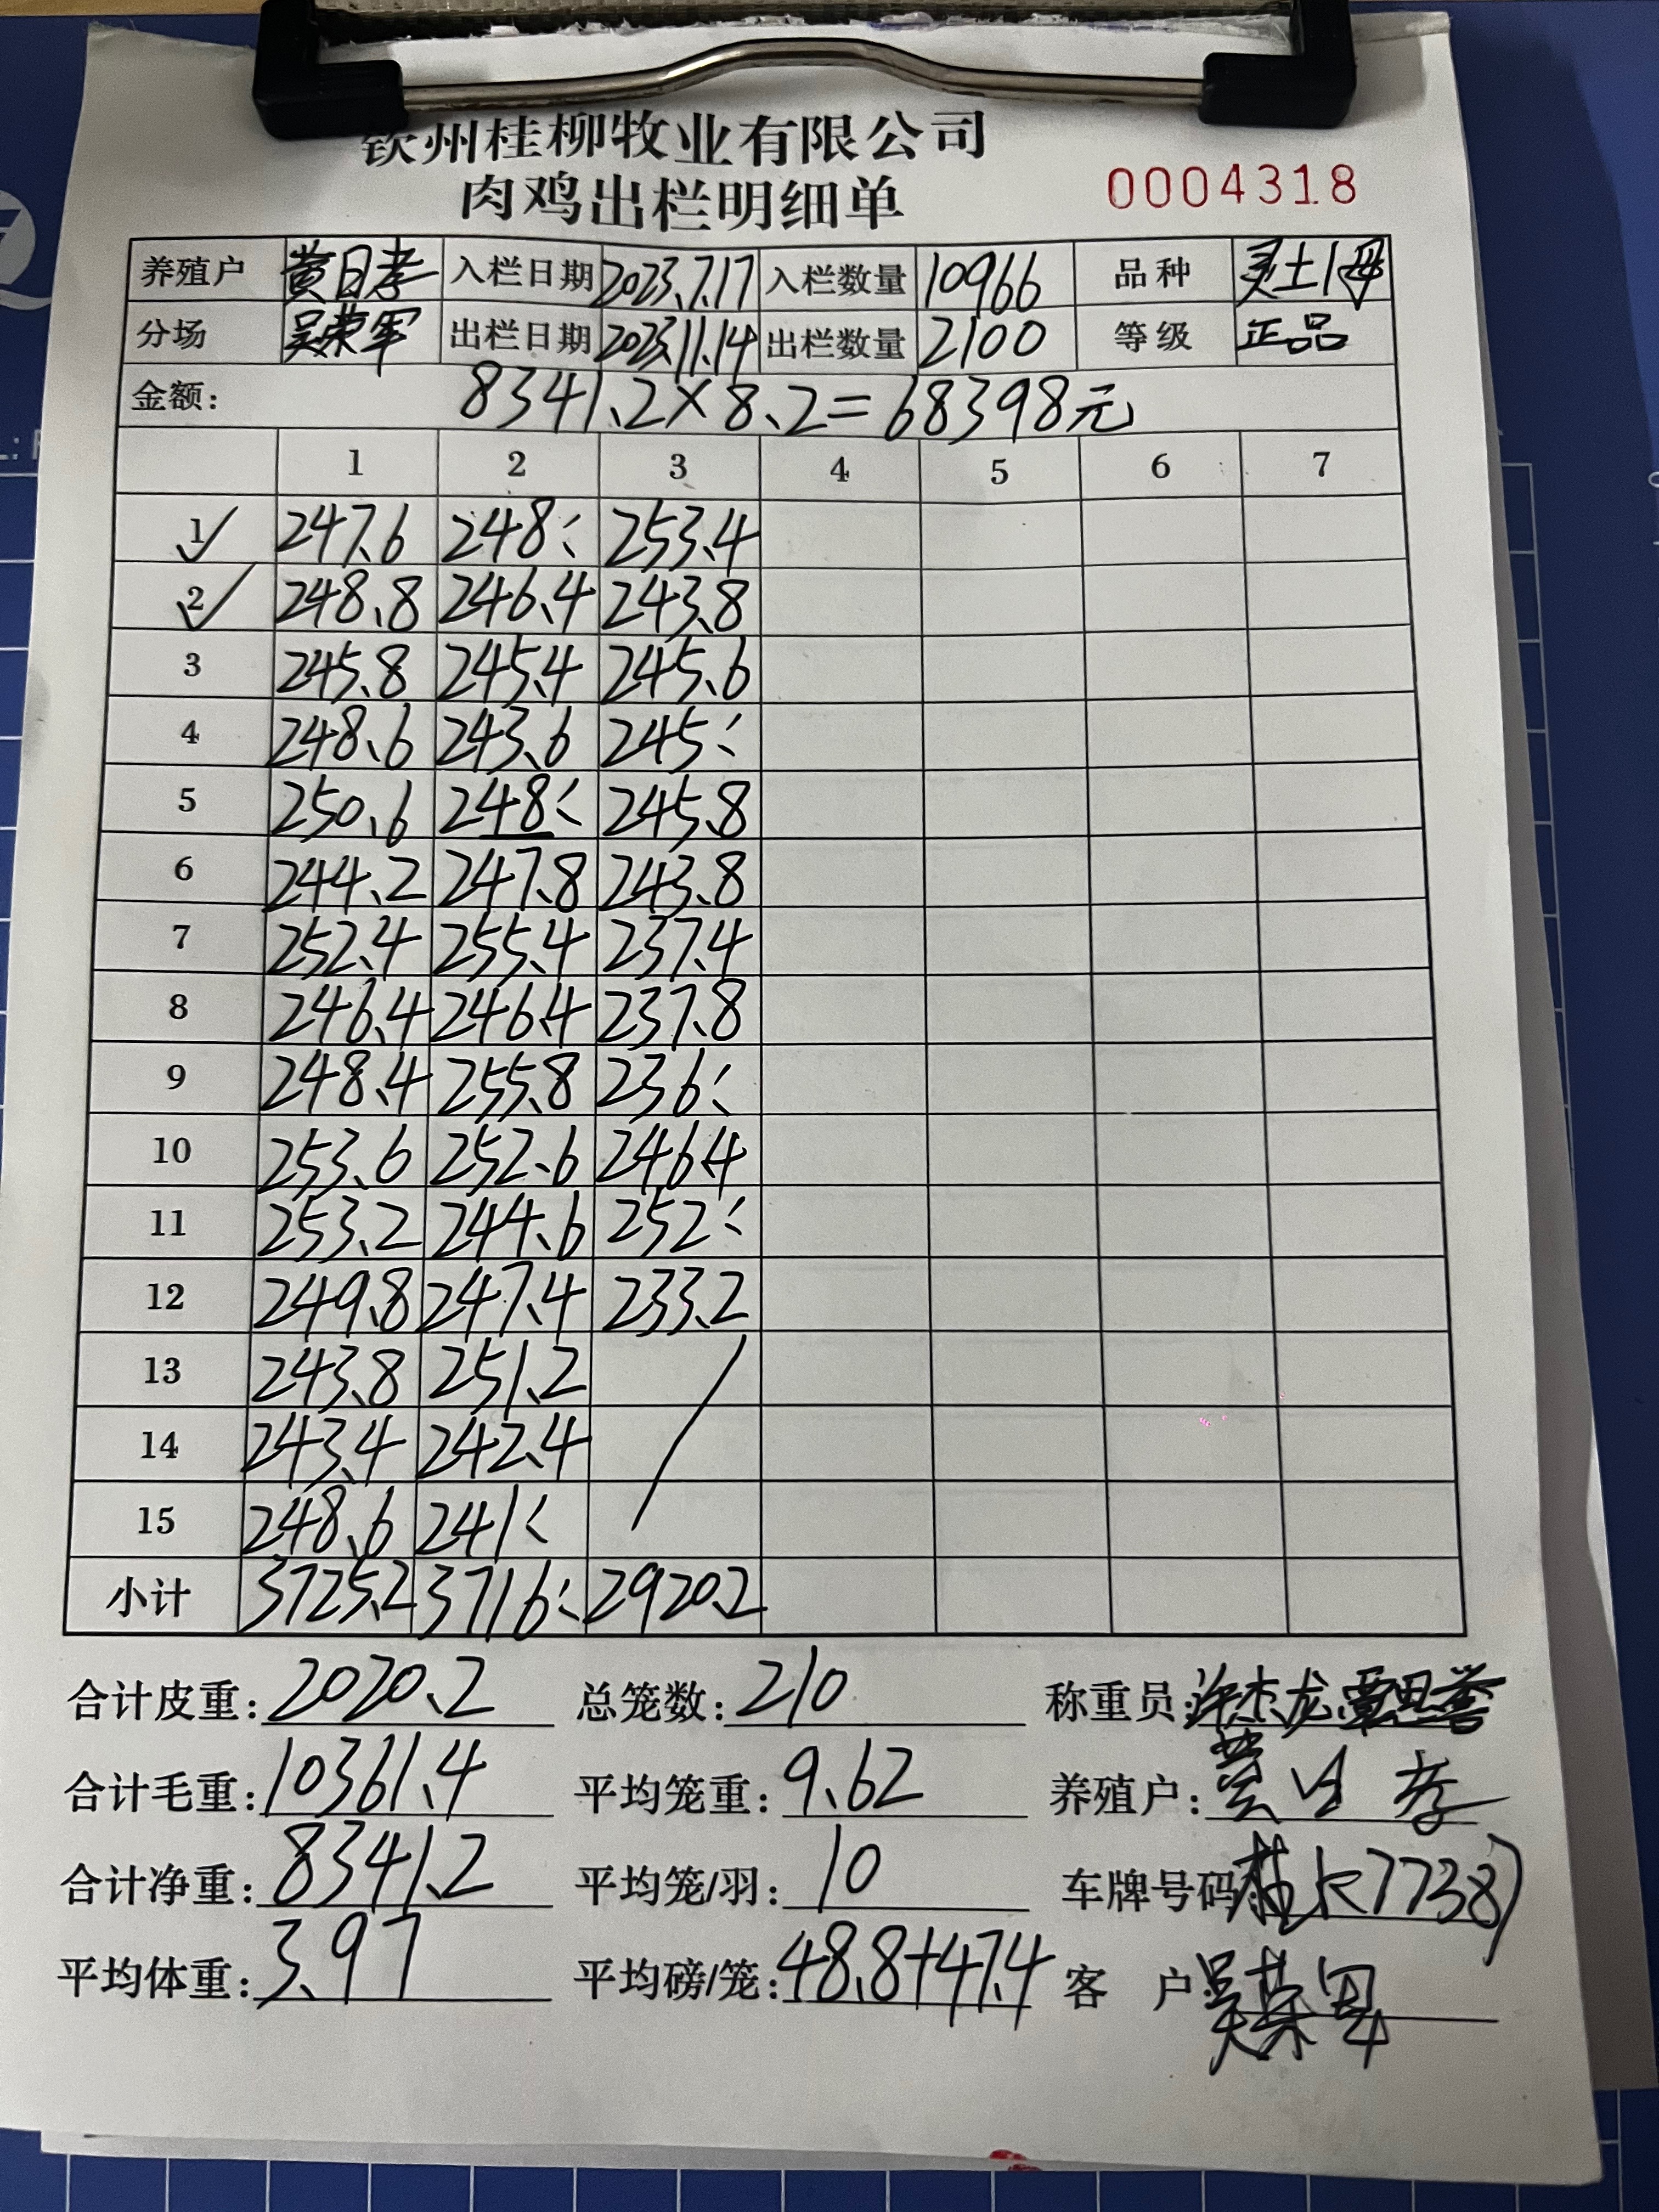 钦州桂柳牧业有限公司
肉鸡出栏明细单 0004318
养殖户 黄日孝 入栏日期 2023.7.17 入栏数量 10966 品种 灵土1母
分场 吴荣军 出栏日期 2023.11.14 出栏数量 2100 等级 正品
金额: 8341.2×8.2=68398元
1 2 3 4 5 6 7
1 247.6 248< 253.4
2 248.8 246.4 243.8
3 245.8 245.4 245.6
4 248.6 243.6 245<
5 250.6 248< 245.8
6 244.2 247.8 243.8
7 252.4 255.4 237.4
8 246.4 246.4 237.8
9 248.4 255.8 236<
10 253.6 252.6 246.4
11 253.2 244.6 252<
12 249.8 247.4 233.2
13 243.8 251.2
14 243.4 242.4
15 248.6 241<
小计 3725.2 3716< 2920.2
合计皮重: 2020.2 总笼数: 210 称重员: 许杰龙
合计毛重: 10361.4 平均笼重: 9.62 养殖户: 黄日孝
合计净重: 8341.2 平均笼/羽: 10 车牌号码 77387
平均体重: 3.97 平均磅/笼: 48.8+47.4 客 户 吴荣军